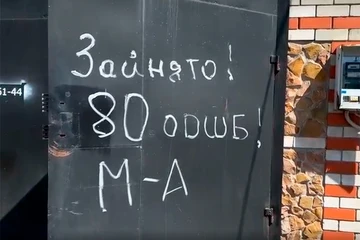 51-44
Зайнято!
80 ОДШБ!
М-А